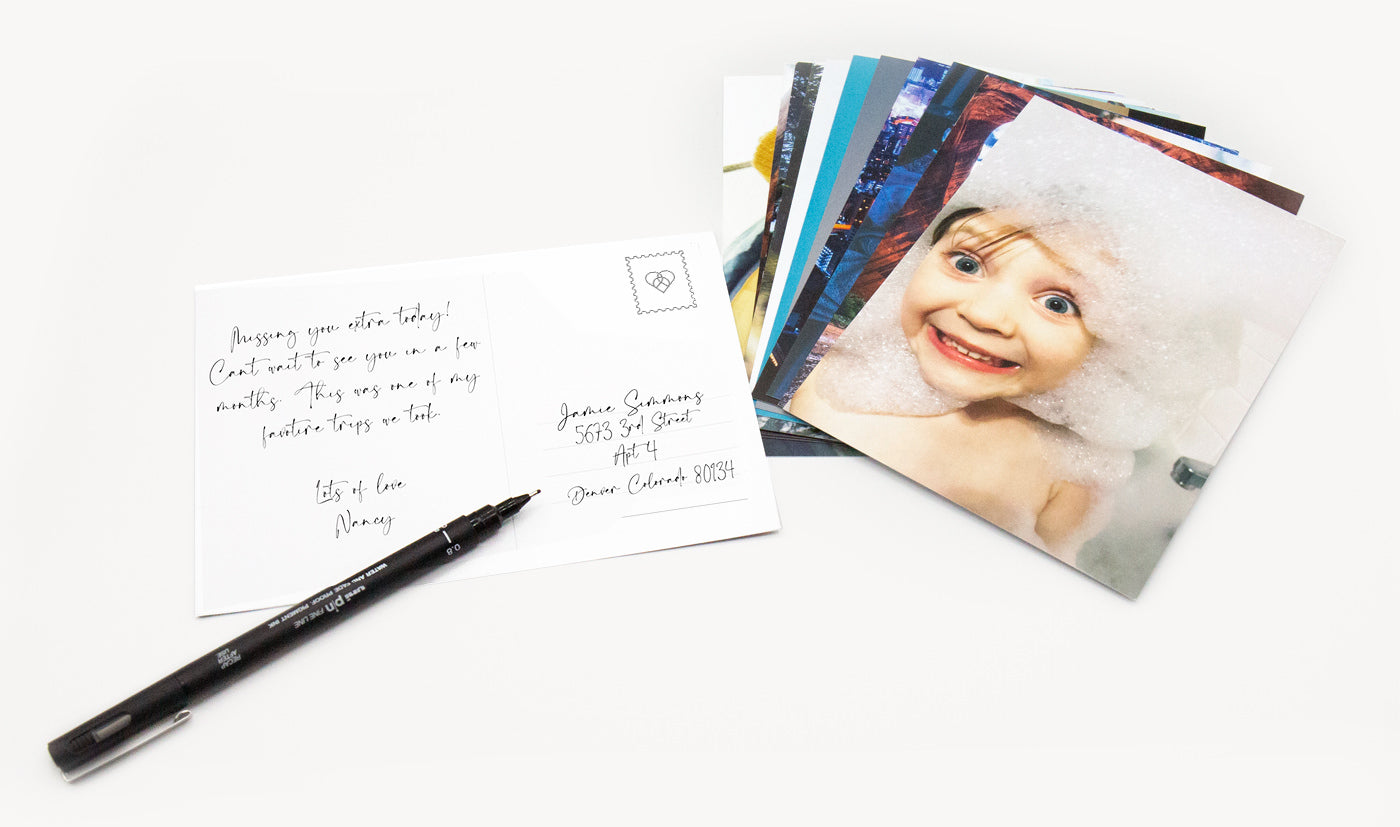 Missing you extra today!
Cant wait to see you in a few
months. This was one of my
favotire trips we took.
Lots of love
Nancy
Jamie Simmons
5673 3rd Street
Apt 4
Denver Colorado 80134
0.8
uni pin FINE LINE
WATER AND FADE PROOF PIGMENT INK
RECAP
AFTER
USE